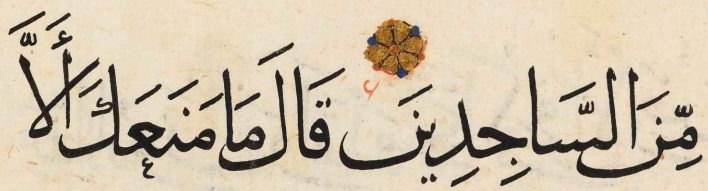 مِّنَ السَّاجِدِينَ قَالَ مَا مَنَعَكَ أَلَّا